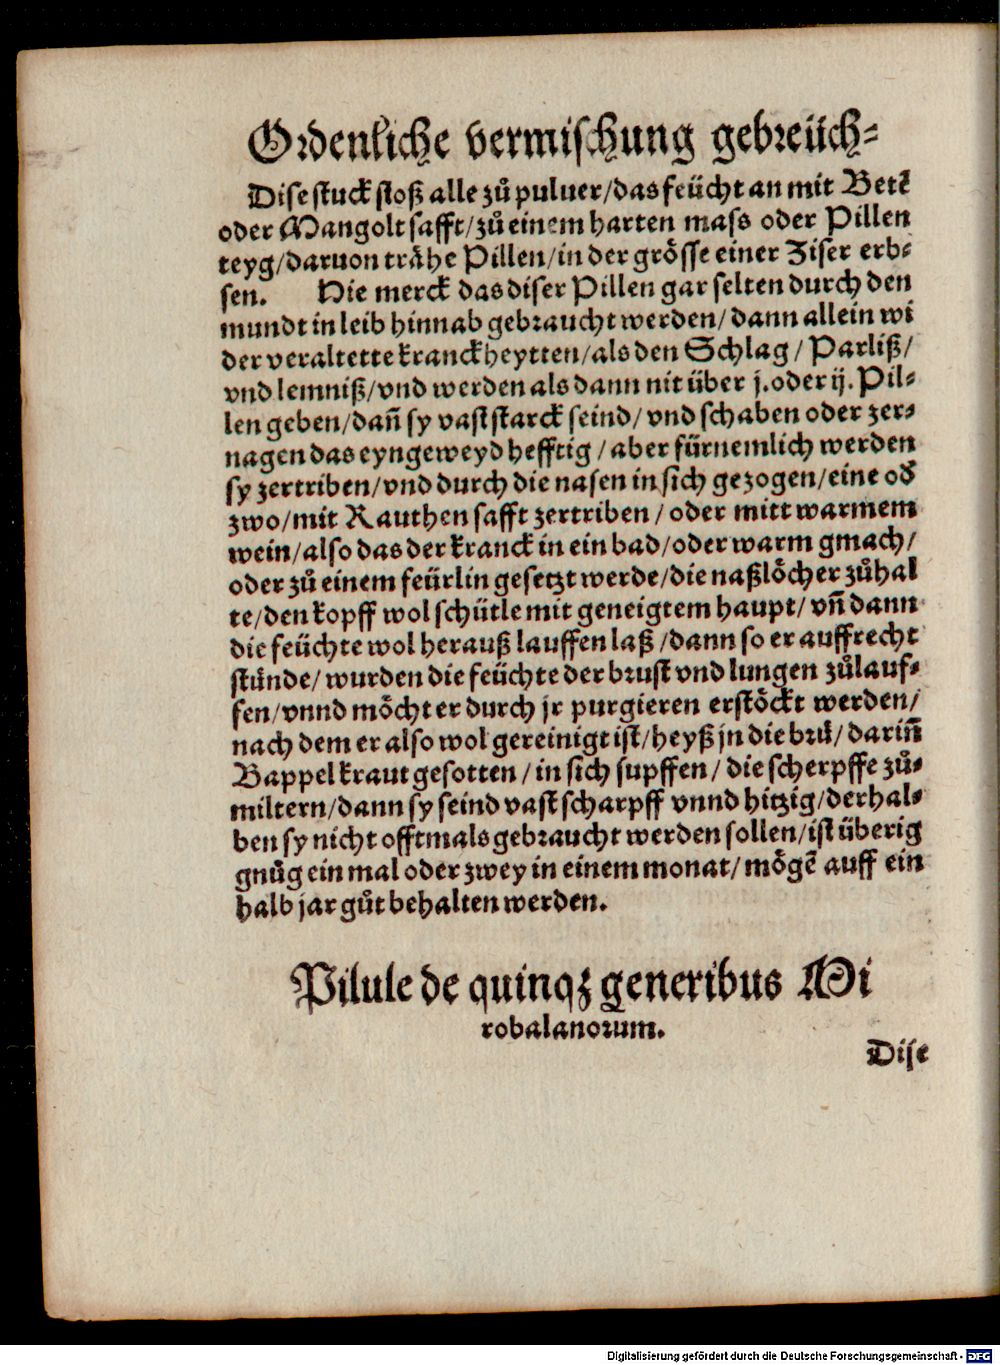 Ordenliche vermischung gebreüch⸗
Dise stuck stoß alle zů puluer/das feücht an mit Betē
oder Mangolt safft/zů einem harten mass oder Pillen
teyg/daruon trähe Pillen/in der grösse einer Ziser erb⸗
sen. Hie merck das diser Pillen gar selten durch den
mundt in leib hinnab gebraucht werden/dann allein wi
der veraltette kranckheytten/als den Schlag/Parliß/
vnd lemniß/vnd werden als dann nit über j.oder ij.Pil⸗
len geben/dañ sy vast starck seind/vnd schaben oder zer⸗
nagen das eyngeweyd hefftig/aber fürnemlich werden
sy zertriben/vnd durch die nasen in sich gezogen/eine od̓
zwo/mit Rauthen safft zertriben/oder mitt warmem
wein/also das der kranck in ein bad/oder warm gmach/
oder zů einem feürlin gesetzt werde/die naßlöcher zůhal
te/den kopff wol schütle mit geneigtem haupt/vñ dann
die feüchte wol herauß lauffen laß/dann so er auffrecht
stünde/wurden die feüchte der brust vnd lungen zůlauf⸗
fen/vnnd möcht er durch jr purgieren erstöckt werden/
nach dem er also wol gereinigt ist/heyß jn die brü/dariñ
Bappel kraut gesotten/in sich supffen/die scherpffe zů⸗
miltern/dann sy seind vast scharpff vnnd hitzig/derhal⸗
ben sy nicht offtmals gebraucht werden sollen/ist überig
gnůg ein mal oder zwey in einem monat/mögē auff ein
halb jar gůt behalten werden.
Pilule de quinqꝫ generibus Mi
robalanorum.
Dise
Digitalisierung gefördert durch die Deutsche Forschungsgemeinschaft - DFG